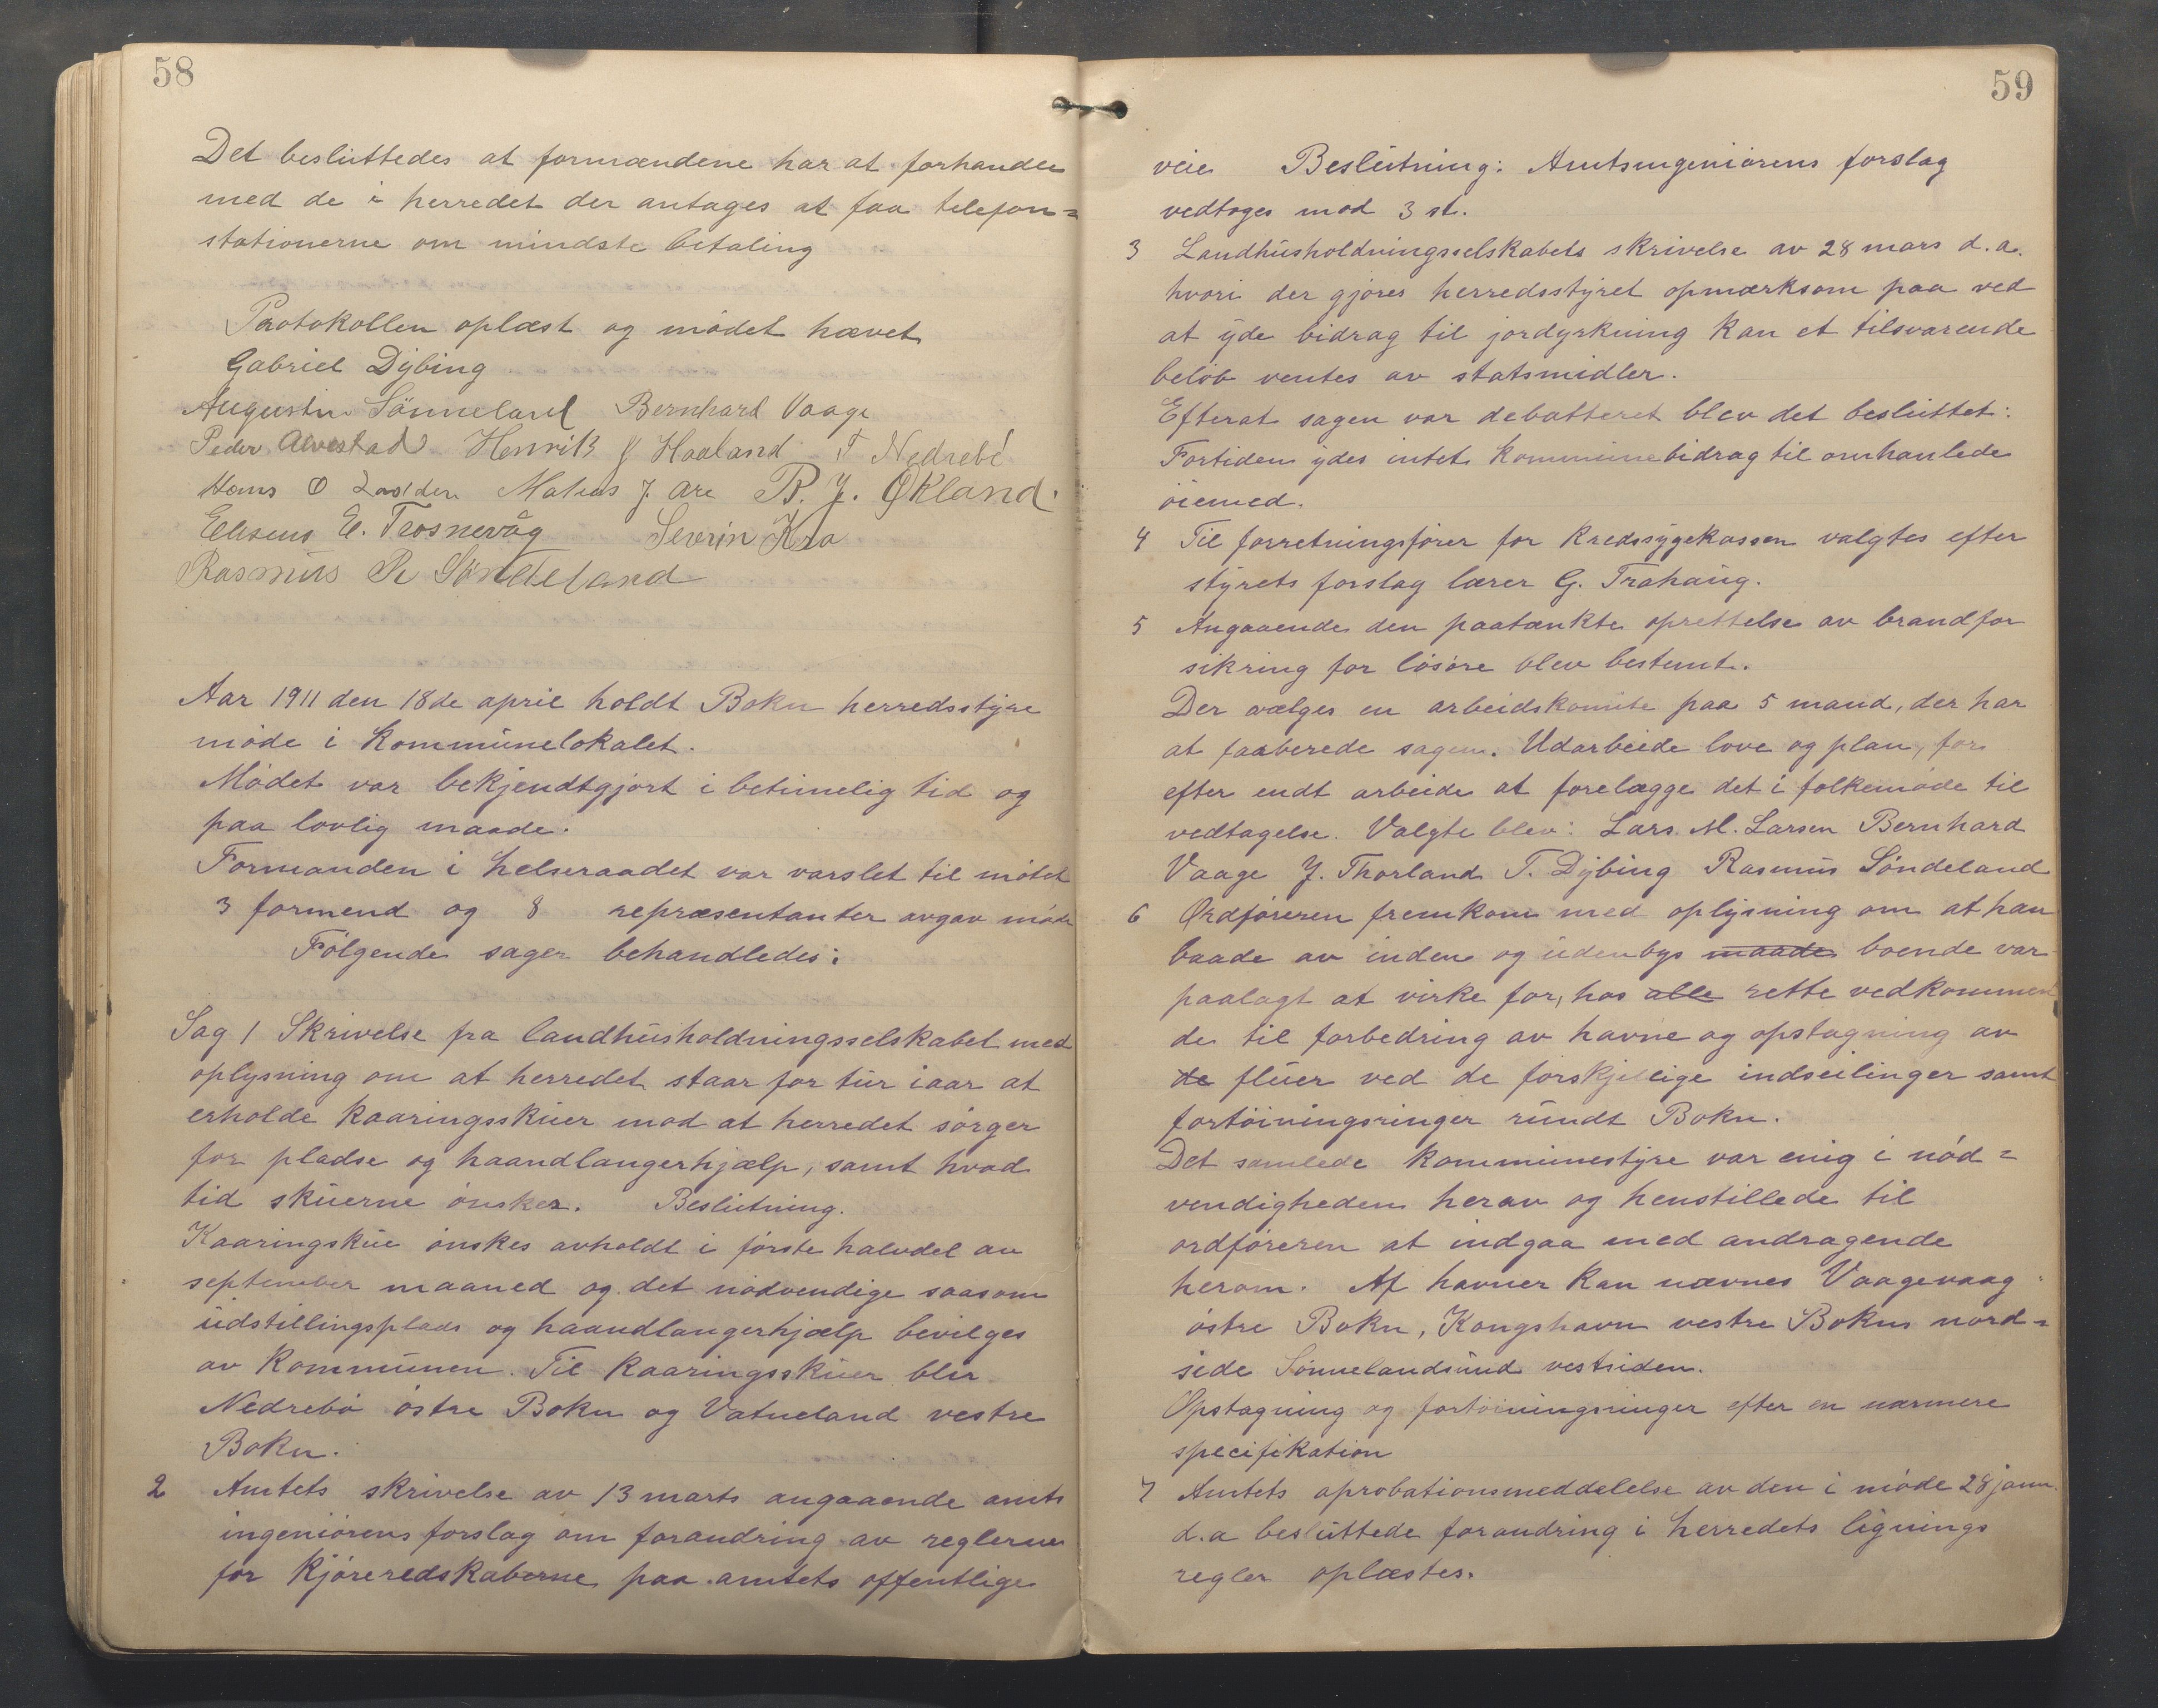 58
Det besluttedes at formændene har at forhandle
med de i herredet der antages at faa telefon=
stationerne om mindste betaling
Protokollen oplæst og mødet hævet
Gabriel Dybing
Augustin Sønneland Bernhard Vaage
Peder Alvestad Henrik J Haaland T Nedrebø
Hans O Lodden Matias J. Are B. J. Økland.
Elisæus E. Trosnevåg Severin Kro
Rasmus R Sønneland
Aar 1911 den 18de april holdt Bokn herredsstyre
møde i Kommunelokalet.
Mødet var bekjendtgjort i betimelig tid og
paa lovlig maade.
Formanden i helseraadet var varslet til mötet
3 formend og 8 repræsentanter avgav møde
Følgende sager behandledes:
Sag 1 Skrivelse fra landhusholdningsselskabet med
oplysning om at herredet staar for tur iaar at
erholde Kaaringsskuer mod at herredet sørger
for pladse og haandlangerhjælp, samt hvad
tid skuerne ønskes. Beslutning.
Kaaringskue ønskes avholdt i første halvdel av
september maaned og det nødvendige saasom
udstillingsplads og haandlangerhjælp bevilges
av Kommunen. Til Kaaringsskuer blir
Nedrebø østre Bokn og Vatneland vestre
Bokn.
2 Amtets skrivelse av 13 marts angaaende amts
ingeniørens forslag om forandring av reglerne
for Kjøreredskaberne paa amtets offentlige
59
veie Beslutning: Amtsingeniørens forslag
vedtoges mod 3 st.
3 Landhusholdningsselskabets skrivelse av 28 mars d.a.
hvori der gjøres herredsstyret opmærksom paa ved
at yde bidrag til jordyrkning Kan et tilsvarende
beløb ventes av statsmidler.
Efterat sagen var debatteret blev det besluttet:
Fortiden ydes intet Kommunebidrag til omhanlede
øiemed.
4 Til forretningsfører for Kredssygekassen valgtes efter
styrets forslag lærer G. Trahaug.
5 Angaaende den paatænkte oprettelse av brandfor
sikring for løsøre blev bestemt.
Der vælges en arbeidskomite paa 5 mand, der har
at faaberede sagen. Udarbeide love og plan, for
efter endt arbeide at forelægge det i folkemøde til
vedtagelse. Valgte blev: Lars M. Larsen Bernhard
Vaage J. Thorland T. Dybing Rasmus Søndeland
6 Ordføreren fremkom med oplysning om at han
baade av inden og udenbys maade boende var
paalagt at virke for, hos alle rette vedkommen
de til forbedring av havne og opstagning av
de fluer ved de forskjellige indseilinger samt
fortøiningsringer rundt Bokn.
Det samlede Kommunestyre var enig i nød=
vendigheden herav og henstillede til
ordføreren at indgaa med andragende
herom. Af havner Kan nævnes Vaagevaag
østre Bokn, Kongshavn vestre Bokns nord=
side Sønnelandsund vestsiden.
Opstagning og fortøiningsringer efter en nærmere
specifikation
7 Amtets aprobationsmeddelelse av den i møde 28 janu.
d.a besluttede forandring i herredets lignings
regler oplæstes.